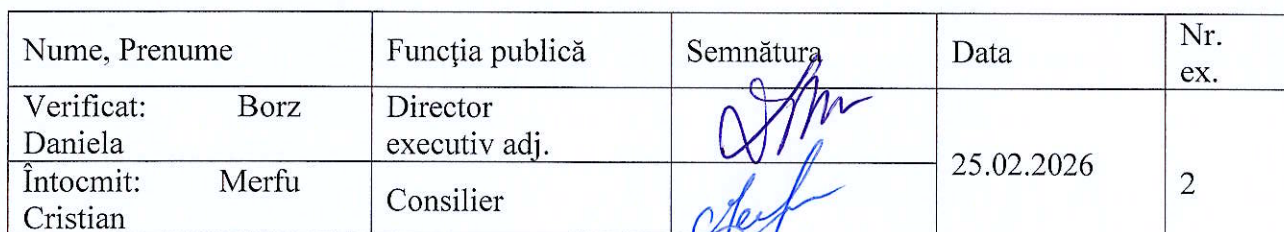 Nume, Prenume Funcţia publică Semnătura Data Nr.
ex.
Verificat: Borz
Daniela
Director
executiv adj.
25.02.2026
2
Întocmit: Merfu
Cristian
Consilier